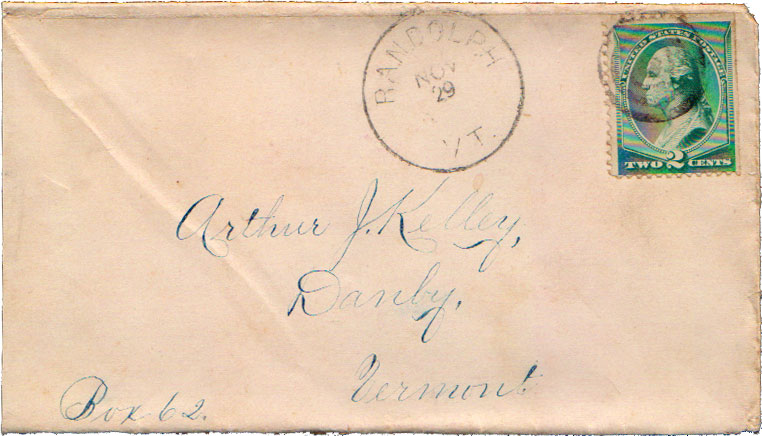 RANDOLPH
NOV
29
VT.
UNITED STATES POSTAGE
TWO 2 CENTS
Arthur J. Kelley,
Danby,
Vermont
Box 62.